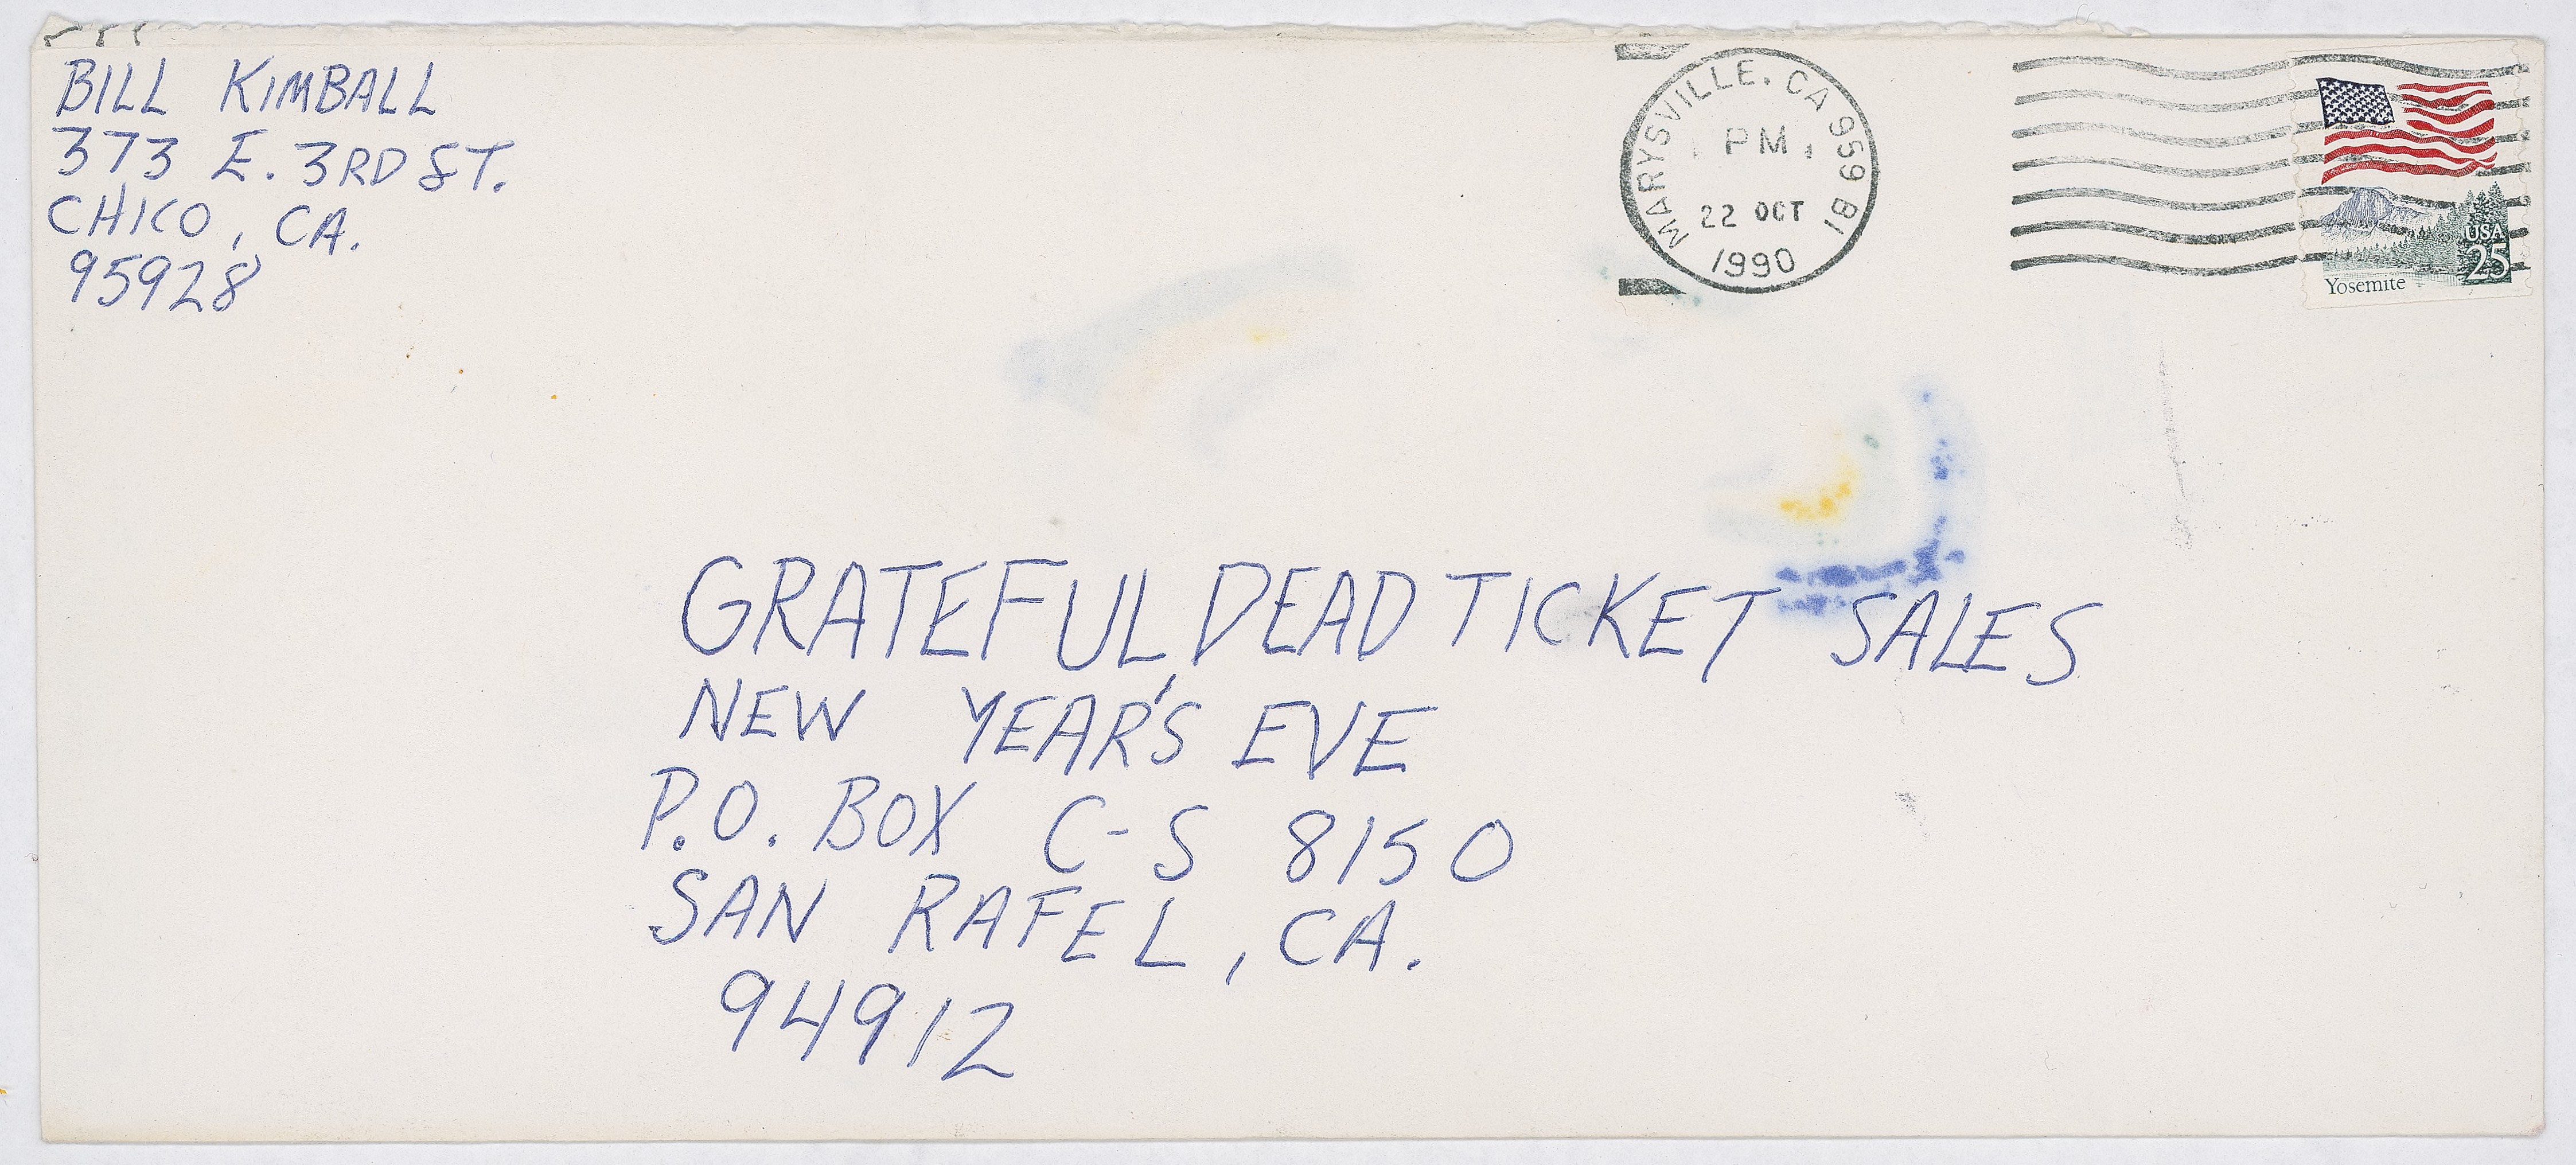 BILL KIMBALL
373 E. 3RD ST.
CHICO, CA.
95928
MARYSVILLE, CA 959 B1
PM
22 OCT
1990
USA
25
Yosemite
GRATEFUL DEAD TICKET SALES
NEW YEAR'S EVE
P.O. BOX C-S 8150
SAN RAFEL, CA.
94912